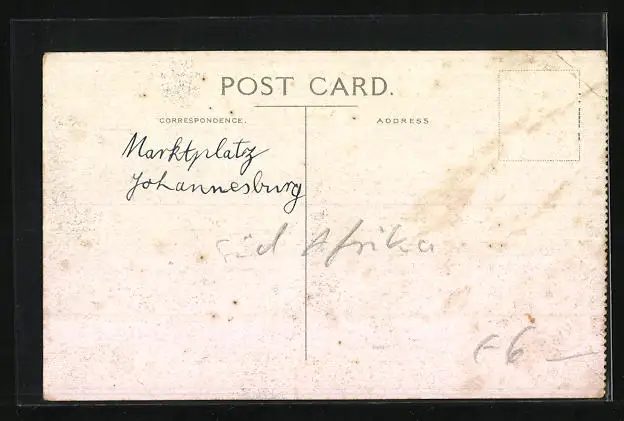 POST CARD.
CORRESPONDENCE.
ADDRESS.
Marktplatz
Johannesburg
Süd Afrika